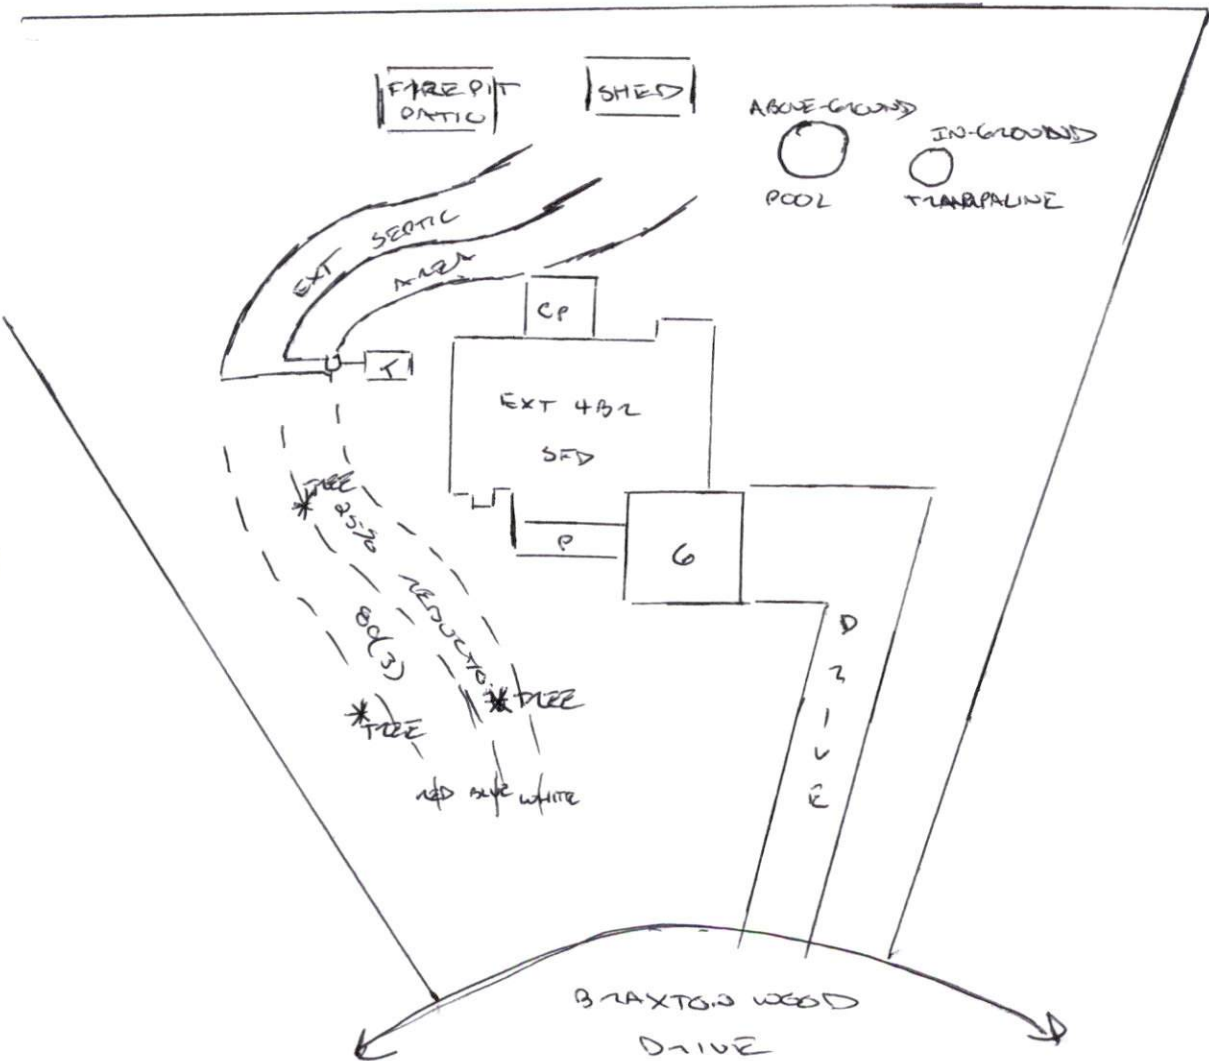 FIREPIT
PATIO
SHED
ABOVE-GROUND
POOL
IN-GROUND
TRAMPALINE
EXT SEPTIC
AREA
CP
T
EXT 4BR
SFD
TREE
25%
REDUCTIO
80(3)
P
G
DRIVE
TREE
TREE
RED BLUE WHITE
BRAXTON WOOD
DRIVE